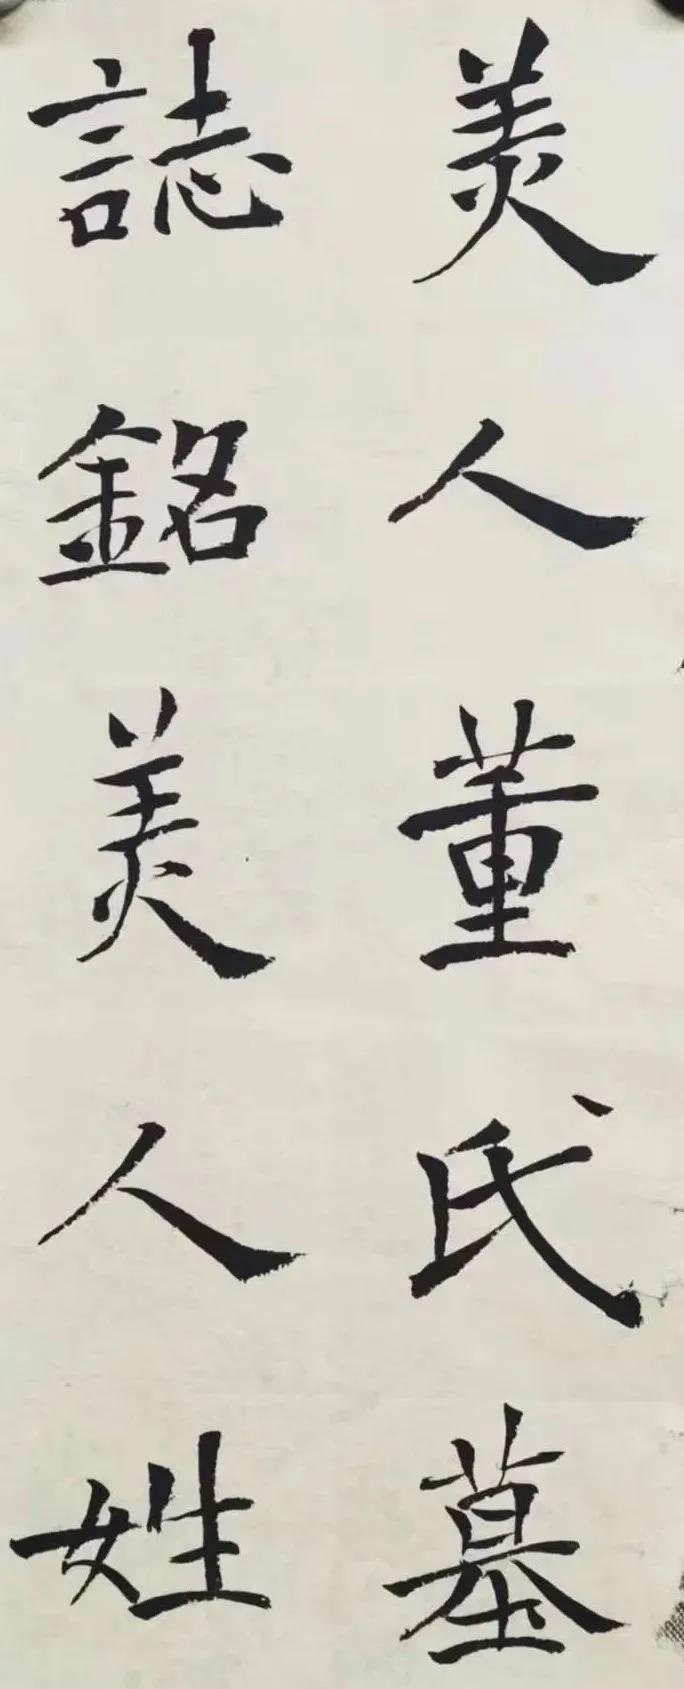 美人董氏墓
誌銘美人姓